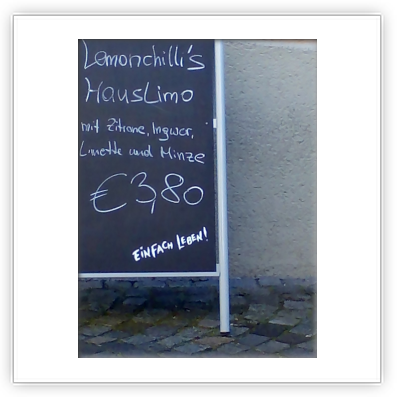 Lemonchilli's
HausLimo
mit Zitrone, Ingwer,
Limette und Minze
€3,80
EINFACH LEBEN!